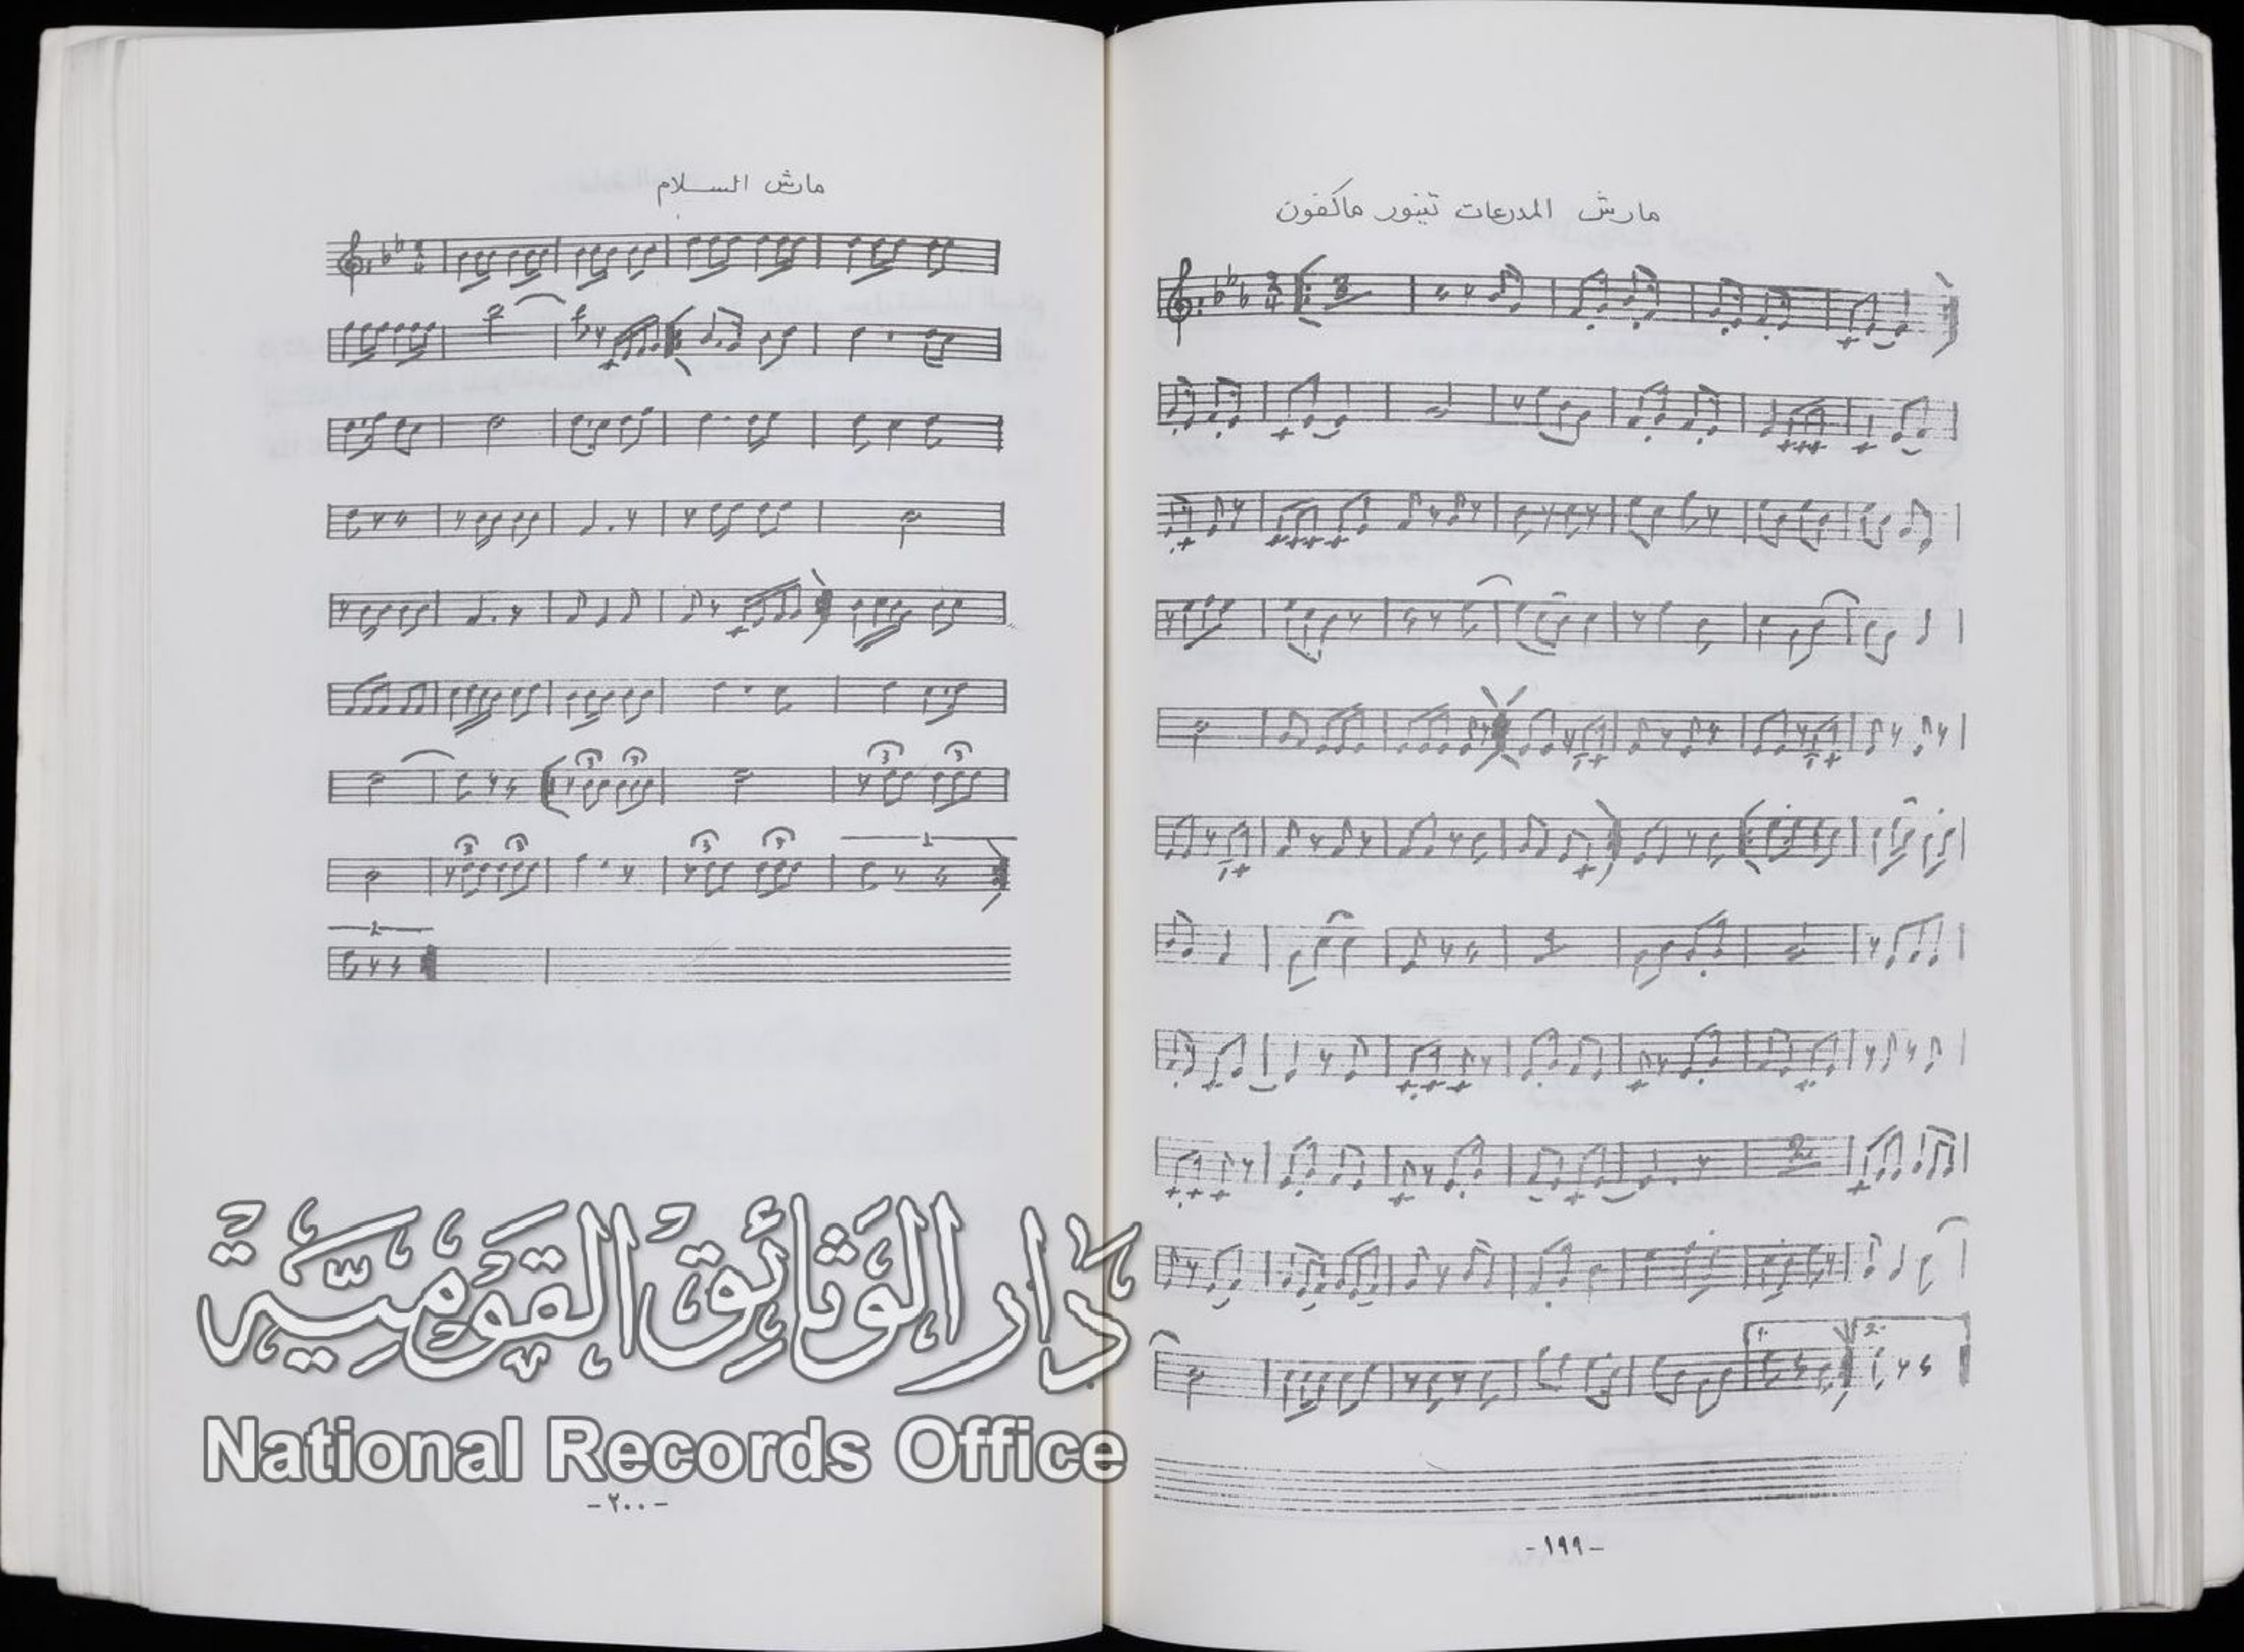 مارش المدرعات تينور ماكفون
1.
2.
-١٩٩-
مارش السلام
3
3
3
3
3
3
3
3
1
2
-٢٠٠-
دَار الوَثائِق القَوْمِيَّة
National Records Office